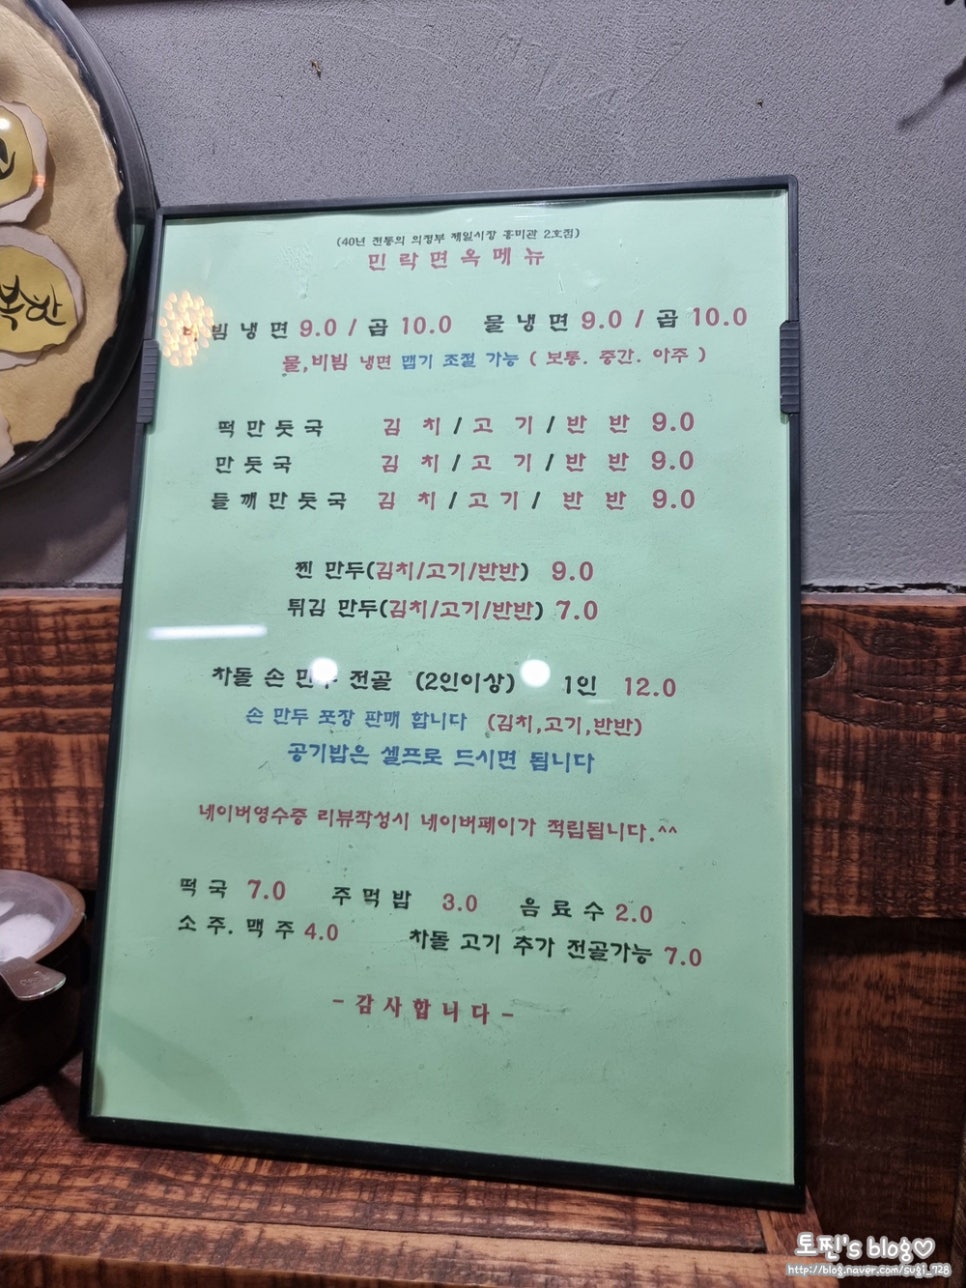 복한
(40년 전통의 의정부 제일시장 흥미관 2호점)
민락면옥메뉴
비빔냉면 9.0 / 곱 10.0 물냉면 9.0 / 곱 10.0
물,비빔 냉면 맵기 조절 가능 ( 보통. 중간. 아주 )
떡만둣국 김치/고기/반반 9.0
만둣국 김치/고기/반반 9.0
들깨만둣국 김치/고기/반반 9.0
찐 만두(김치/고기/반반) 9.0
튀김 만두(김치/고기/반반) 7.0
차돌 손 만두 전골 (2인이상) 1인 12.0
손 만두 포장 판매 합니다 (김치,고기,반반)
공기밥은 셀프로 드시면 됩니다
네이버영수증 리뷰작성시 네이버페이가 적립됩니다.^^
떡국 7.0 주먹밥 3.0 음료수 2.0
소주. 맥주 4.0 차돌 고기 추가 전골가능 7.0
-감사합니다-
토찐's blog♡
http://blog.naver.com/sugi_728